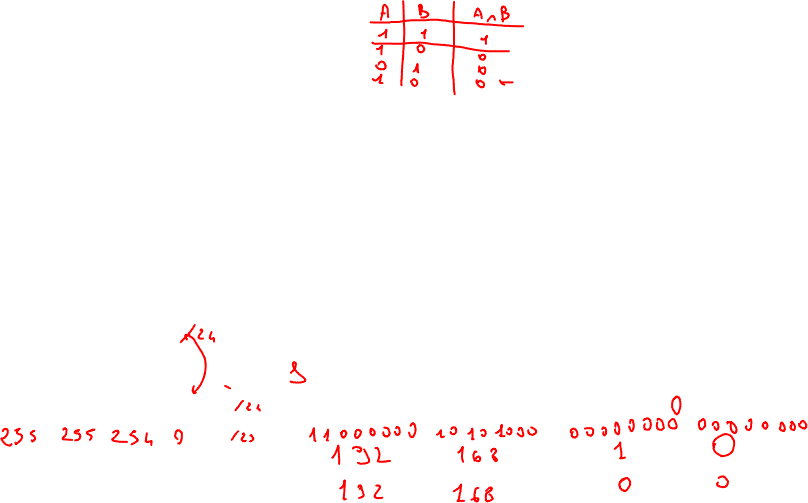 A B A∧B
1 1 1
1 0 0
0 1 0
1 0 0
/24
/24
255 255 254 0 /23 11000000 10101000 00000000 0 00000000
192 168 1 0
192 168 0 0